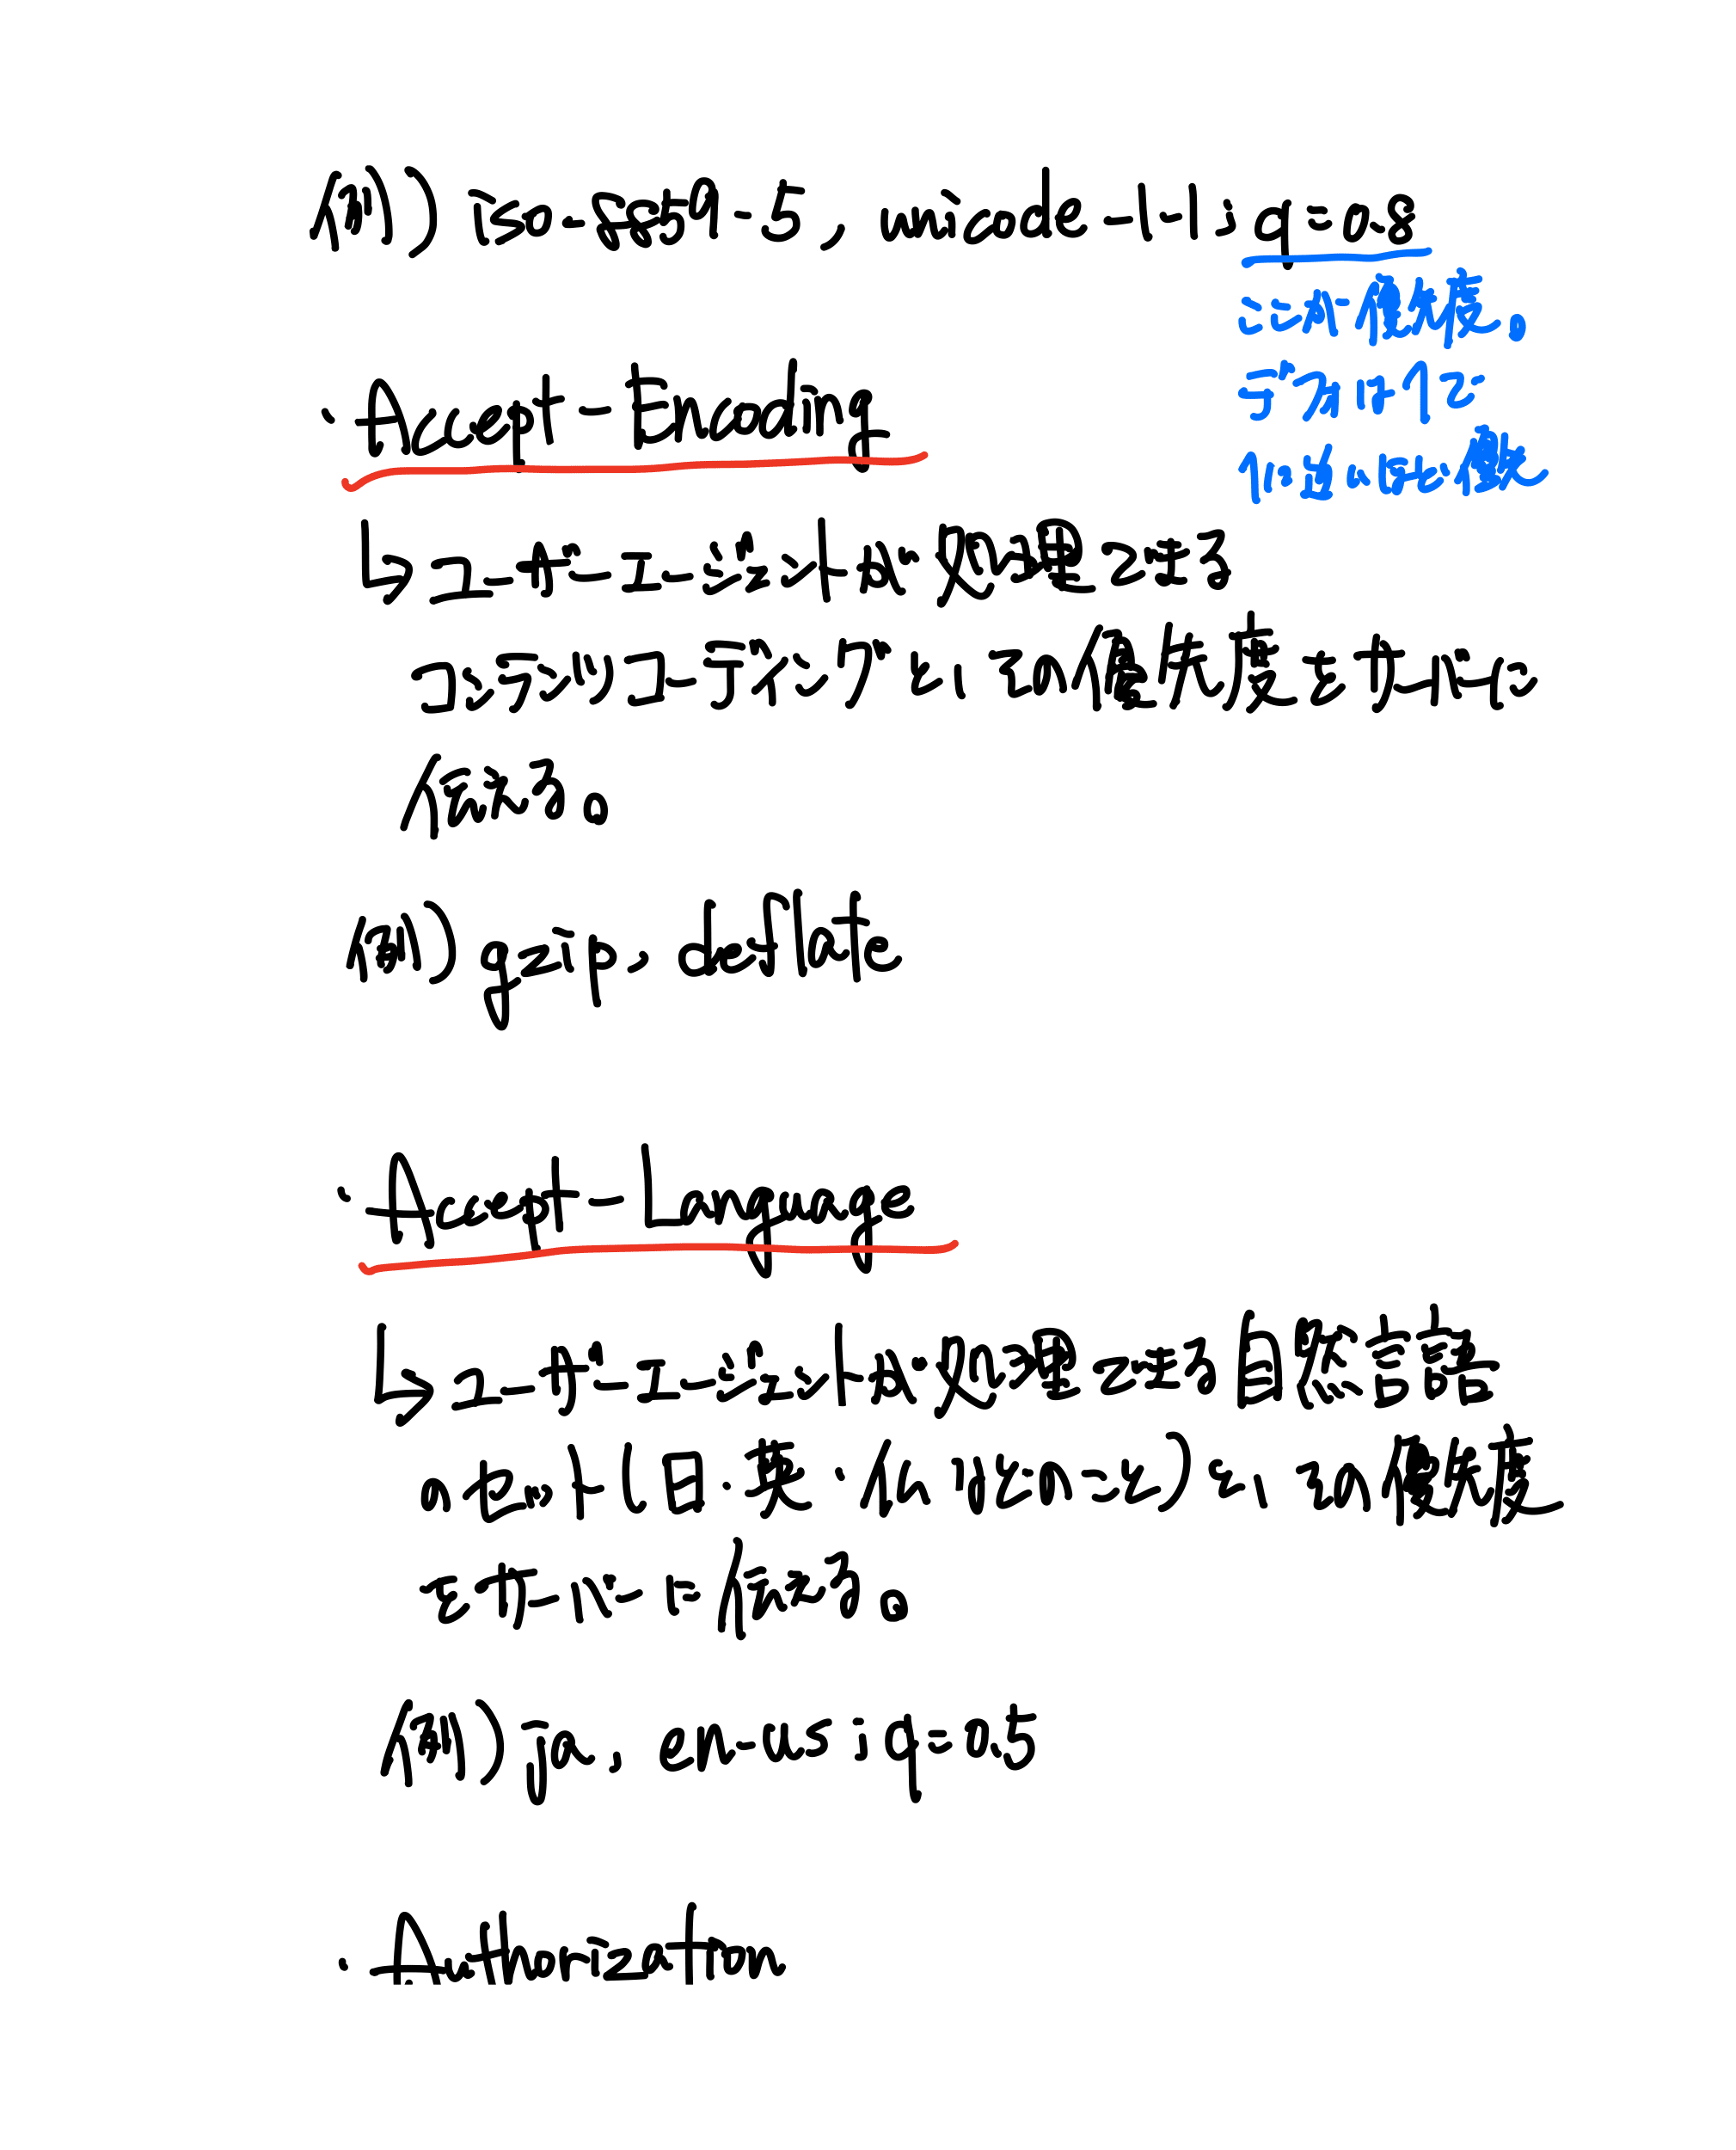 例) iso-8859-5, unicode-1-1; q=0.8
ここが優先度。
デフォは1で
1に近いほど優
・Accept-Encoding
↳ユーザーエージェントが処理できる
コンテンツコーディングと、その優先度をサーバーに
伝える。
例) gzip, deflate
・Accept-Language
↳ユーザーエージェントが処理できる自然言語
のセット(日・英・仏 などのこと)と、その優先度
をサーバーに伝える。
例) ja, en-us;q=0.5
・Authorization